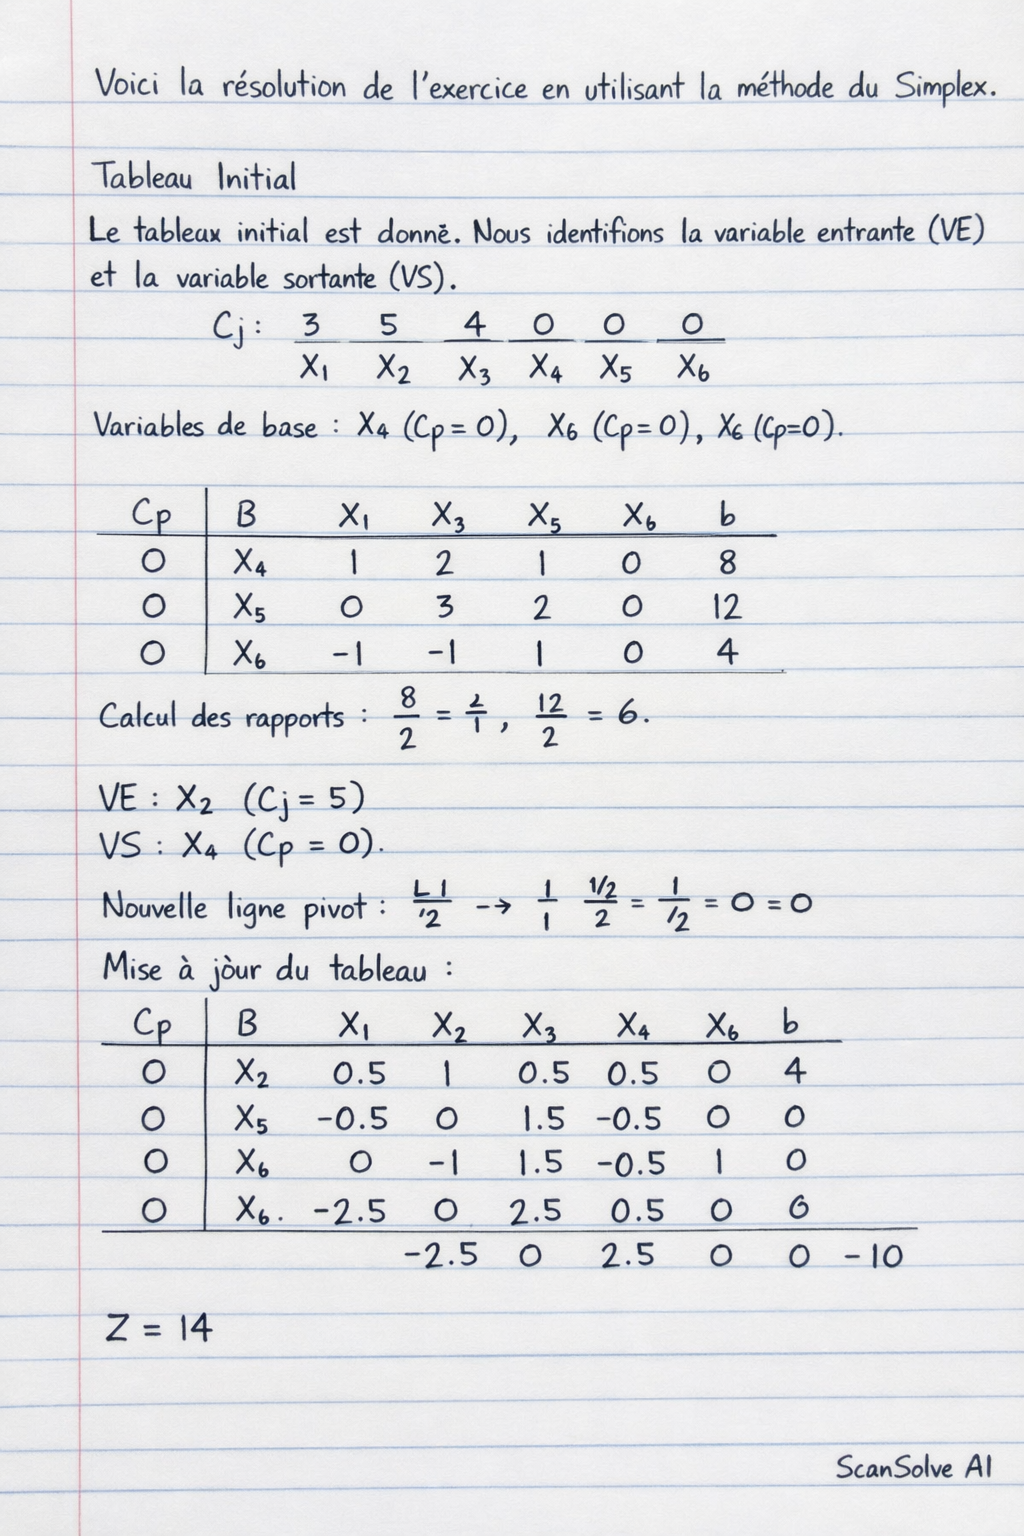 Voici la résolution de l'exercice en utilisant la méthode du Simplex.
Tableau Initial
Le tableux initial est donnē. Nous identifions la variable entrante (VE)
et la variable sortante (VS).
Cj : 3 5 4 0 0 0
X₁ X₂ X₃ X₄ X₅ X₆
Variables de base : X₄ (Cp = 0), X₆ (Cp = 0), X₆ (Cp=0).
Cp B X₁ X₃ X₅ X₆ b
0 X₄ 1 2 1 0 8
0 X₅ 0 3 2 0 12
0 X₆ -1 -1 1 0 4
Calcul des rapports : 8/2 = 2/1, 12/2 = 6.
VE : X₂ (Cj = 5)
VS : X₄ (Cp = 0).
Nouvelle ligne pivot : L1/'2 --> 1/1 1/2/2 = 1//2 = 0 = 0
Mise à jòur du tableau :
Cp B X₁ X₂ X₃ X₄ X₆ b
0 X₂ 0.5 1 0.5 0.5 0 4
0 X₅ -0.5 0 1.5 -0.5 0 0
0 X₆ 0 -1 1.5 -0.5 1 0
0 X₆. -2.5 0 2.5 0.5 0 6
-2.5 0 2.5 0 0 -10
Z = 14
ScanSolve AI